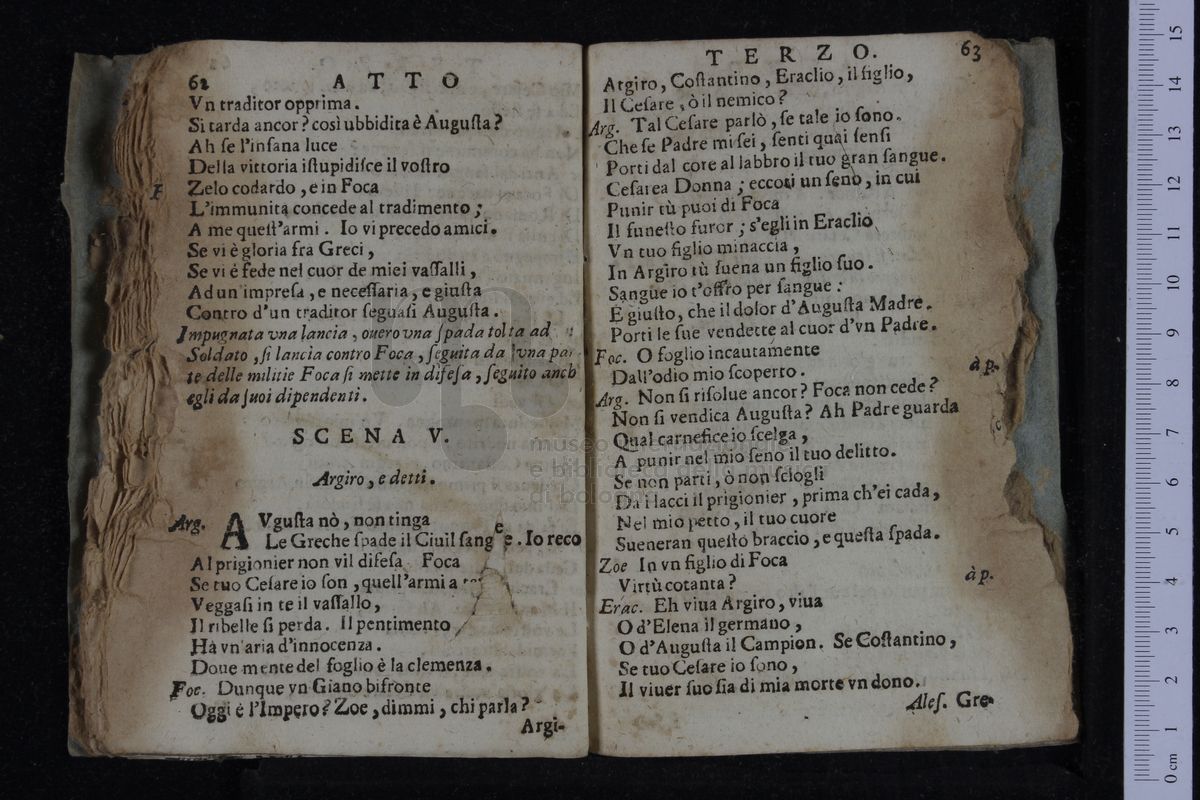 62 ATTO
Vn traditor opprima.
Si tarda ancor? così ubbidita è Augusta?
Ah se l'insana luce
Della vittoria istupidisce il vostro
Zelo codardo, e in Foca
L'immunità concede al tradimento;
A me quest'armi. Io vi precedo amici.
Se vi è gloria fra Greci,
Se vi è fede nel cuor de miei vassalli,
Ad un'impresa, e necessaria, e giusta
Contro d'un traditor seguasi Augusta.
Impugnata vna lancia, ouero vna spada tolta ad
Soldato, si lancia contro Foca, seguita da vna par
te delle militie Foca si mette in difesa, seguito anch
egli da suoi dipendenti.
SCENA V.
Argiro, e detti.
Arg. AVgusta nò, non tinga
Le Greche spade il Ciuil sangue. Io reco
Al prigionier non vil difesa Foca
Se tuo Cesare io son, quell'armi a
Veggasi in te il vassallo,
Il ribelle si perda. Il pentimento
Hà vn'aria d'innocenza.
Doue mente del foglio è la clemenza.
Foc. Dunque vn Giano bifronte
Oggi è l'Impero? Zoe, dimmi, chi parla?
Argi-
TERZO. 63
Argiro, Costantino, Eraclio, il figlio,
Il Cesare, ò il nemico?
Arg. Tal Cesare parlò, se tale io sono.
Che se Padre mi sei, senti quai sensi
Porti dal core al labbro il tuo gran sangue.
Cesarea Donna; eccoti un seno, in cui
Punir tù puoi di Foca
Il funesto furor; s'egli in Eraclio
Vn tuo figlio minaccia,
In Argiro tù suena un figlio suo.
Sangue io t'offro per sangue:
E giusto, che il dolor d'Augusta Madre.
Porti le sue vendette al cuor d'vn Padre.
Foc. O foglio incautamente
Dall'odio mio scoperto. à p.
Arg. Non si risolue ancor? Foca non cede?
Non si vendica Augusta? Ah Padre guarda
Qual carnefice io scelga,
A punir nel mio seno il tuo delitto.
Se non parti, ò non sciogli
Da i lacci il prigionier, prima ch'ei cada,
Nel mio petto, il tuo cuore
Sueneran questo braccio, e questa spada.
Zoe In vn figlio di Foca
Virtù cotanta? à p.
Erac. Eh viua Argiro, viua
O d'Elena il germano,
O d'Augusta il Campion. Se Costantino,
Se tuo Cesare io sono,
Il viuer suo sia di mia morte vn dono.
Ales. Gre-
museo internazionale
e biblioteca della musica
di bologna